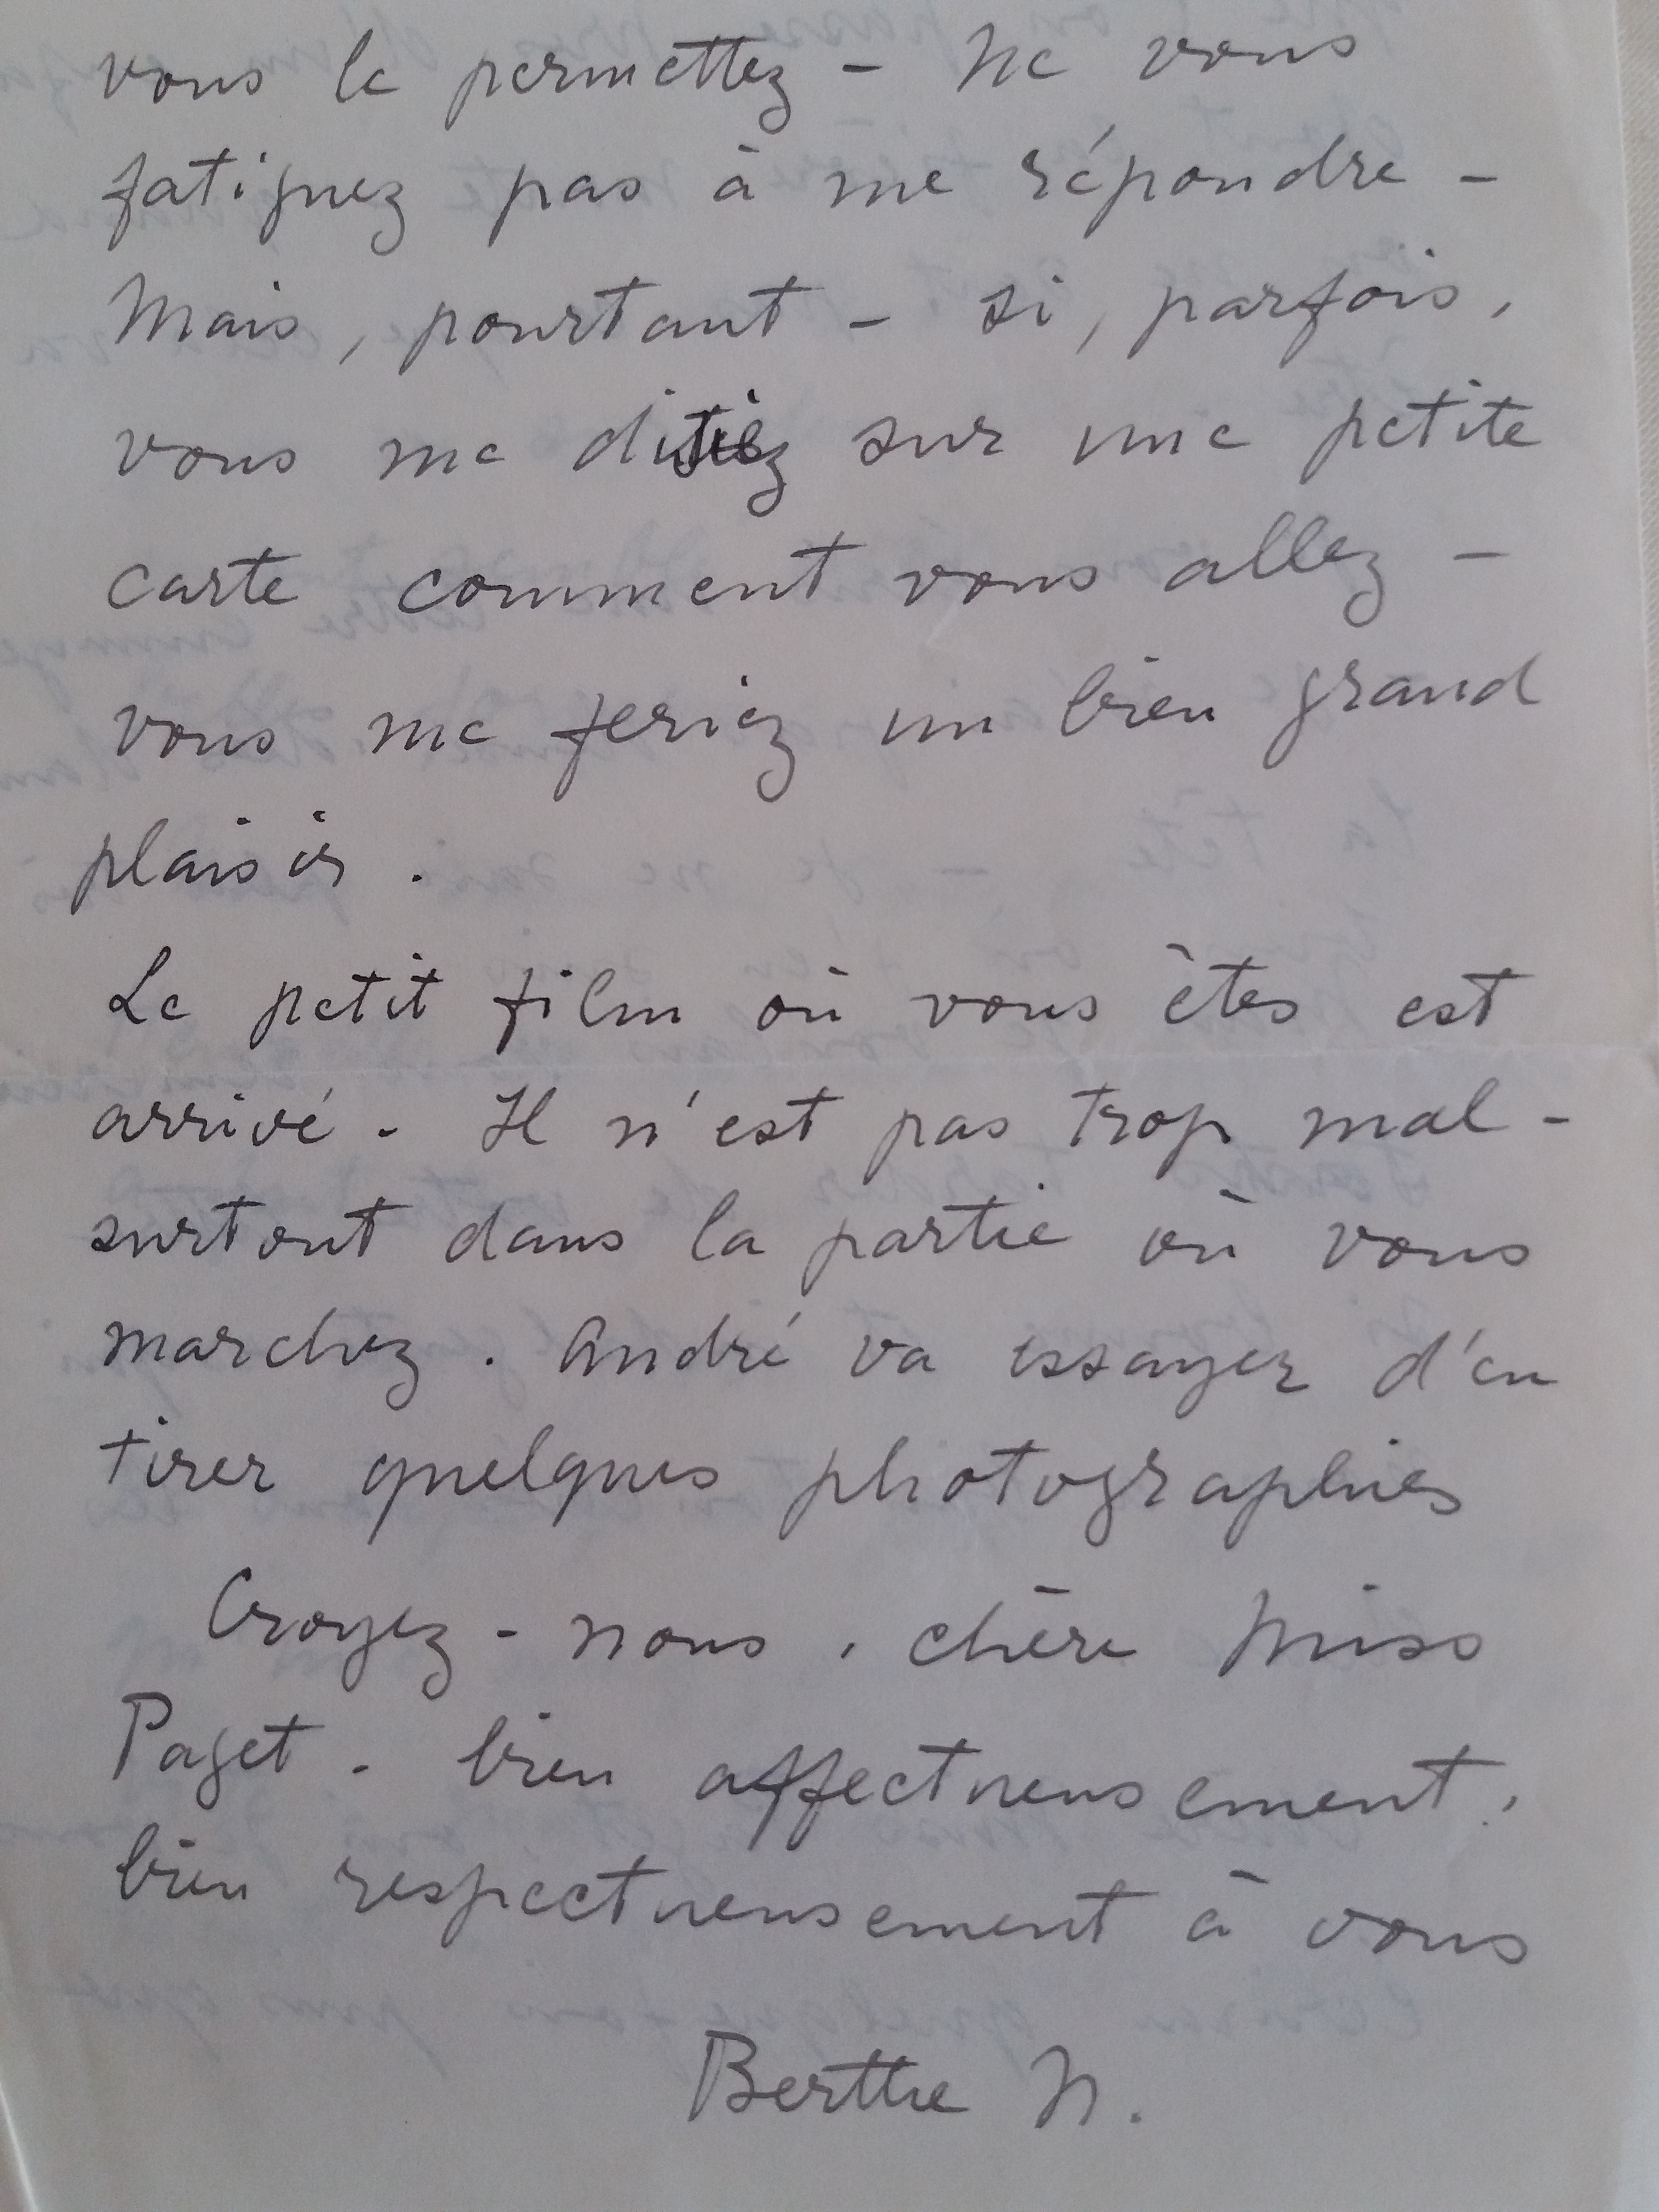 vous le permettez - Ne vous
fatiguez pas à me répondre -
Mais, pourtant - si, parfois,
vous me disiez sur une petite
carte comment vous allez -
vous me feriez un bien grand
plaisir.
Le petit film où vous êtes est
arrivé. Il n'est pas trop mal -
surtout dans la partie où vous
marchez. André va essayer d'en
tirer quelques photographies
Croyez-nous, chère Miss
Paget. bien affectueusement,
bien respectueusement à vous
Berthe N.